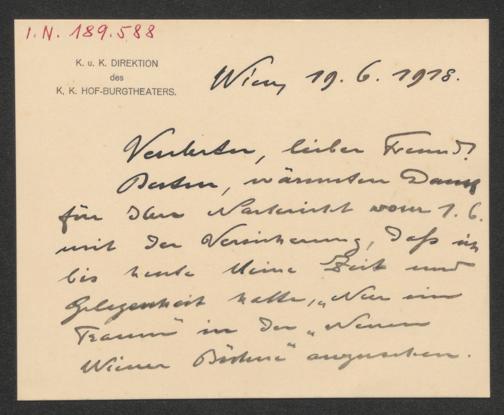 I.N. 189.588
K. u. K. DIREKTION
des
K. K. HOF-BURGTHEATERS.
Wien, 19. 6. 1918.
Verehrter, lieber Freund!
Besten, wärmsten Dank
für Ihre Nachricht vom 1. 6.
mit der Versicherung, daß ich
bis heute keine Zeit und
Gelegenheit hatte, „Nur ein
Traum“ in der „Neuen
Wiener Bühne“ anzusehen.